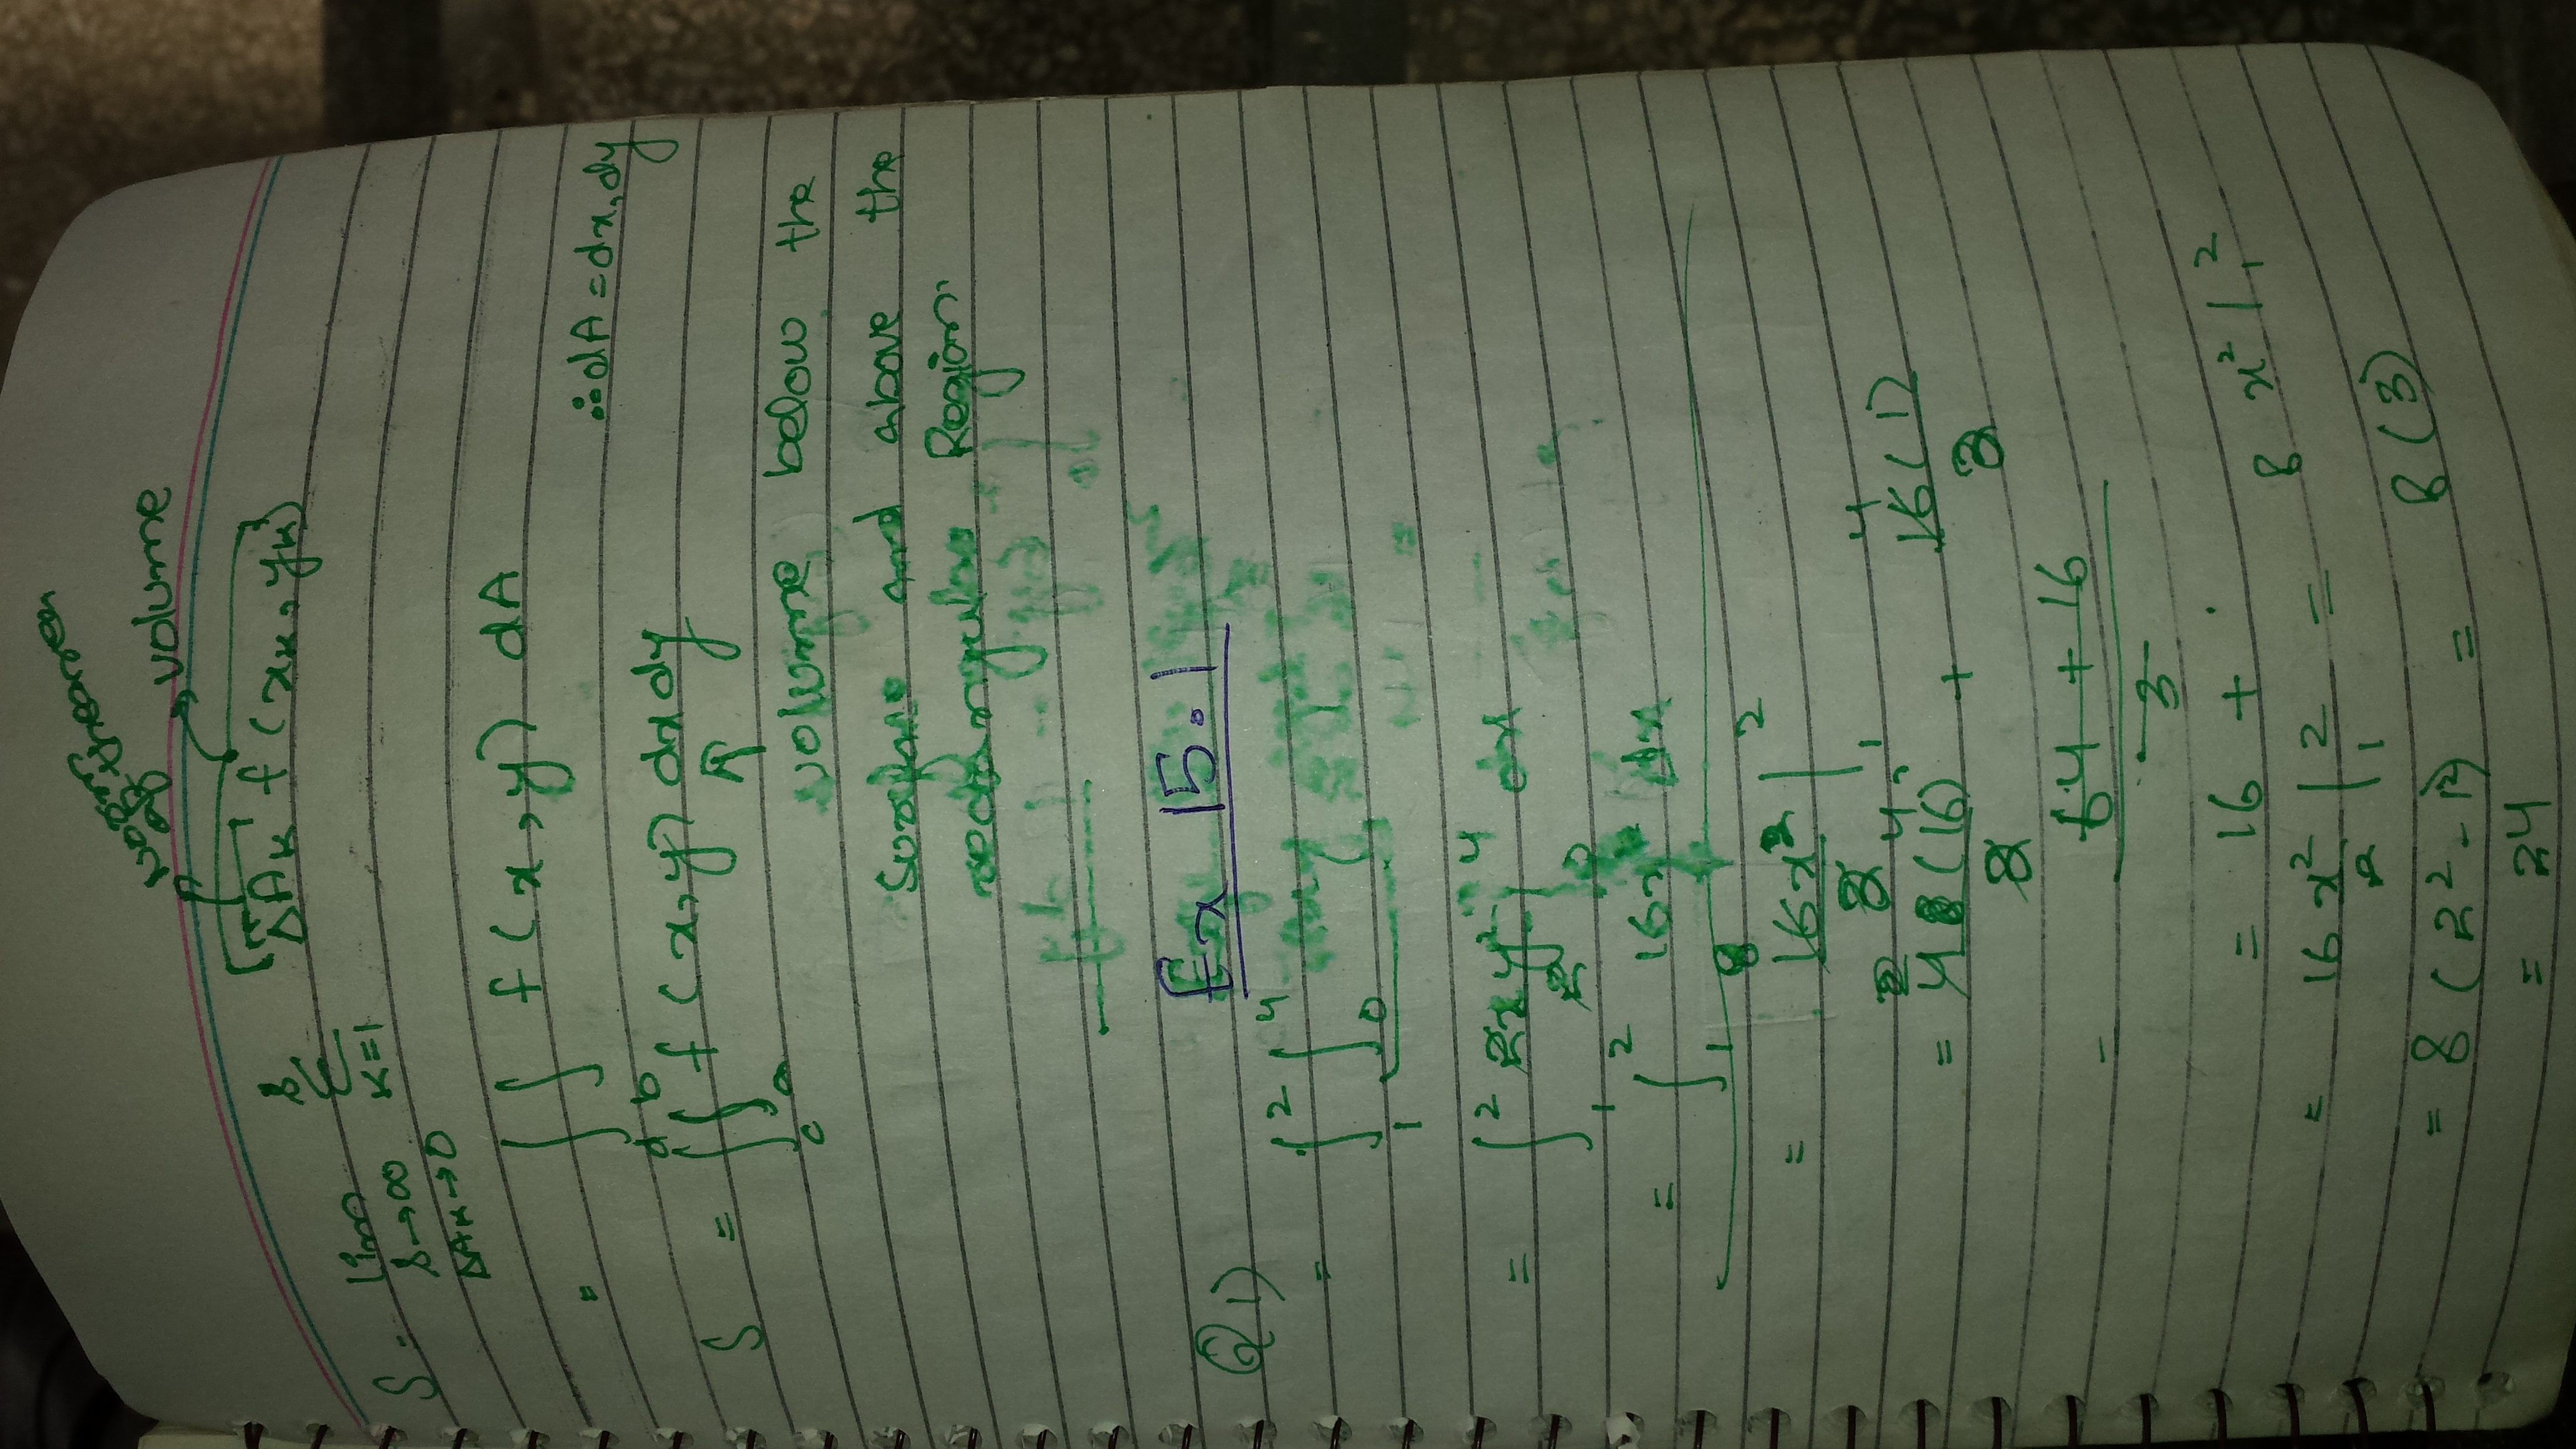 volume
S = lim s→∞ ΔAk→0 Σ k=1 s ΔAk f(xk, yk)
= ∫∫ f(x,y) dA
∴ dA = dx, dy
S = ∫ d c ∫ b a f(x,y) dx dy
↑
volume below the
surface and above the
rectangular Region.
Ex 15.1
Q1)
= ∫ 2 1 ∫ 4 0
= ∫ 2 1 2xy²/2 | 4 0 dx
= ∫ 2 1 16x dx
= 16x²/2 | 2 1
= (16) + 16(1)
= 64 + 16 / 3
= 16 +
= 16 x²/2 | 2 1 = 8 x² | 2 1
= 8 (2² - 1²) = 8(3)
= 24